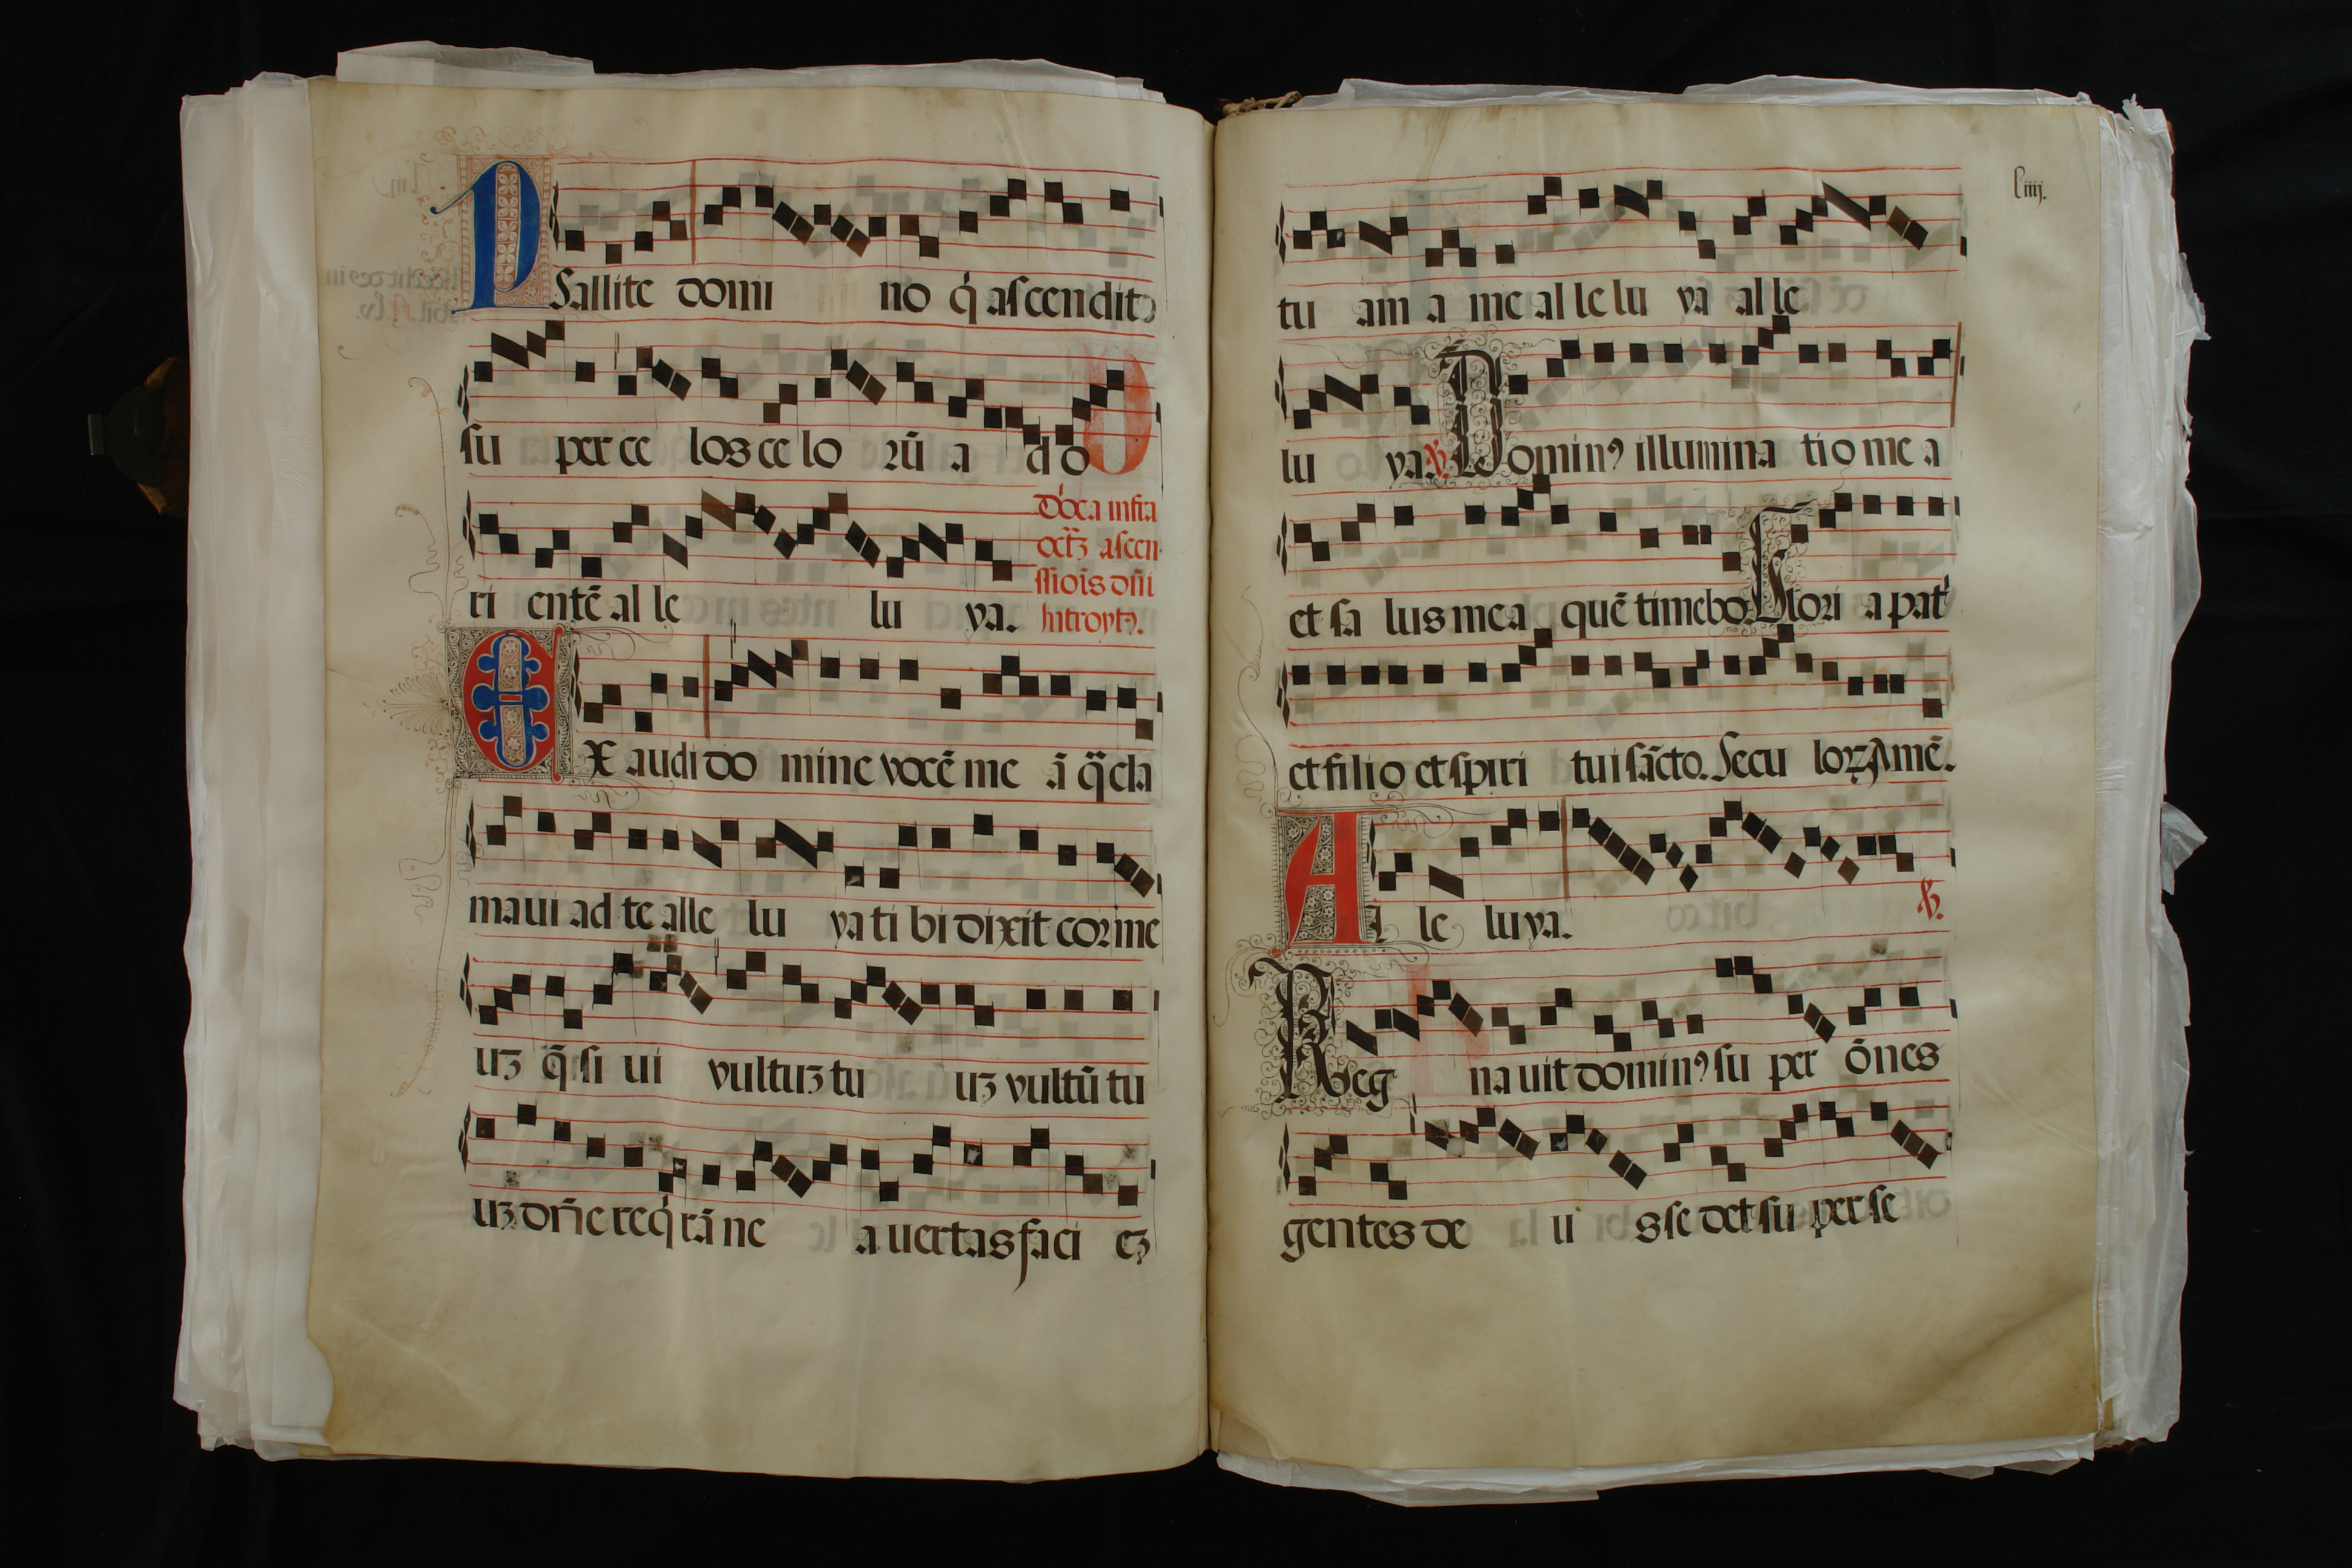 PSallite domi no q̇ ascendit
su per ce los ce lo rū a d o
ri entē al le lu ya.
D
Dōca infra
octꝫ ascen
ssiōis dn̄i
Introytꝰ.
EX audi do mine vocē me ā q̄ cla
maui ad te alle lu ya ti bi dixit cor me
uꝫ q̄ si ui vultuꝫ tu uꝫ vultū tu
uꝫ dn̄e req̇rā ne a uertas faci eꝫ
liiij.
tu am a me al le lu ya al le
lu ya. ℣. Dominꝰ illumina tio me a
et sa lus mea quē timebo. Glori a pat̄
et filio et spiri tui sācto. Secu loꝝ Amē.
Al le luya. ℣.
Reg na uit dominꝰ su per ōnes
gentes de u s se det su per se